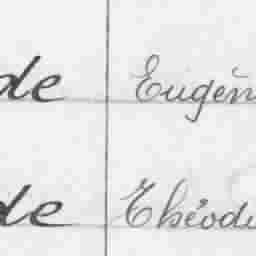 de Eugén
de Théodu